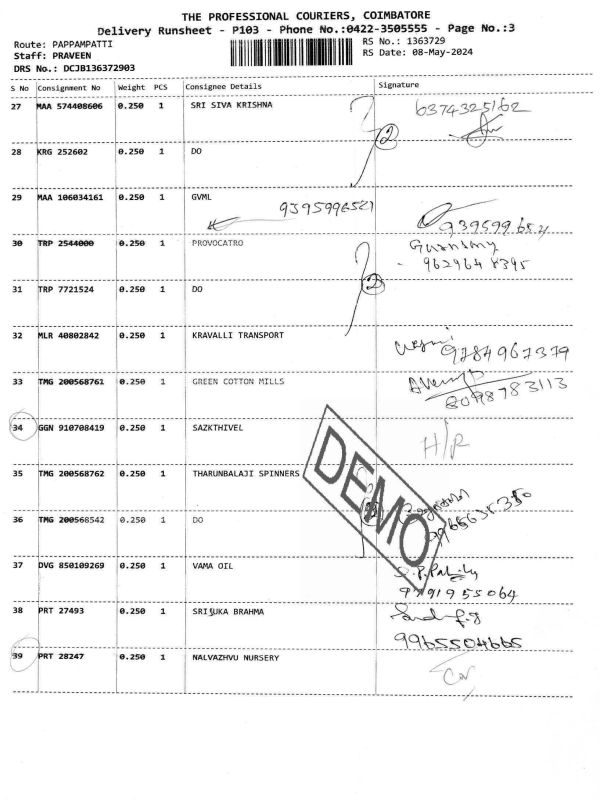 THE PROFESSIONAL COURIERS, COIMBATORE
Delivery Runsheet - P103 - Phone No.:0422-3505555 - Page No.:3
Route: PAPPAMPATTI RS No.: 1363729
Staff: PRAVEEN RS Date: 08-May-2024
DRS No.: DCJB136372903
S No Consignment No Weight PCS Consignee Details Signature
27 MAA 574408606 0.250 1 SRI SIVA KRISHNA 6374325162
2
28 KRG 252602 0.250 1 DO
29 MAA 106034161 0.250 1 GVML
9395996521
30 TRP 2544000 0.250 1 PROVOCATRO
9629648395
31 TRP 7721524 0.250 1 DO 2
32 MLR 40802842 0.250 1 KRAVALLI TRANSPORT
9784967379
33 TMG 200568761 0.250 1 GREEN COTTON MILLS
8098783113
34 GGN 910708419 0.250 1 SAZKTHIVEL
H/R
DEMO
35 TMG 200568762 0.250 1 THARUNBALAJI SPINNERS
36 TMG 200568542 0.250 1 DO
37 DVG 850109269 0.250 1 VAMA OIL
9791955064
38 PRT 27493 0.250 1 SRIJUKA BRAHMA
9965504665
39 PRT 28247 0.250 1 NALVAZHVU NURSERY